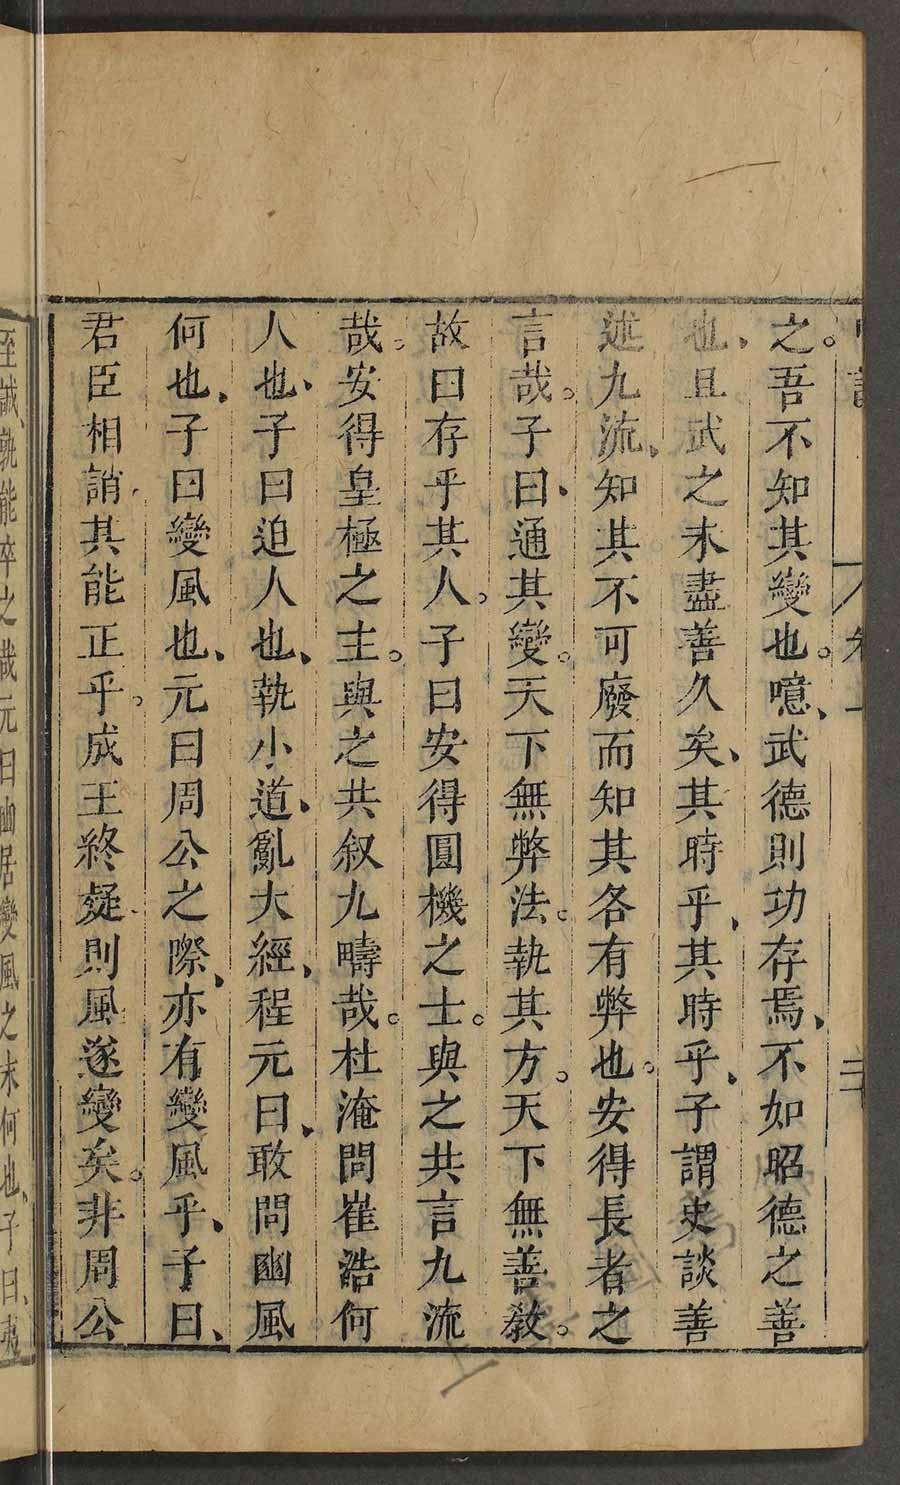 之。吾不知其變也。噫、武德則功存焉、不如昭德之善
也、且武之未盡善久矣、其時乎、其時乎、子謂史談善
述九流、知其不可廢而知其各有弊也。安得長者之
言哉。子曰、通其變。天下無弊法。執其方。天下無善教。
故曰存乎其人。子曰安得圓機之士。與之共言九流
哉。安得皇極之主。與之共叙九疇哉。杜淹問崔浩何
人也、子曰迫人也、執小道、亂大經、程元曰、敢問豳風
何也、子曰變風也、元曰周公之際、亦有變風乎、子曰、
君臣相誚其能正乎。成王終疑則風遂變矣。非周公
至誠、孰能卒之哉元曰豳居變風之末何也、子曰、夷